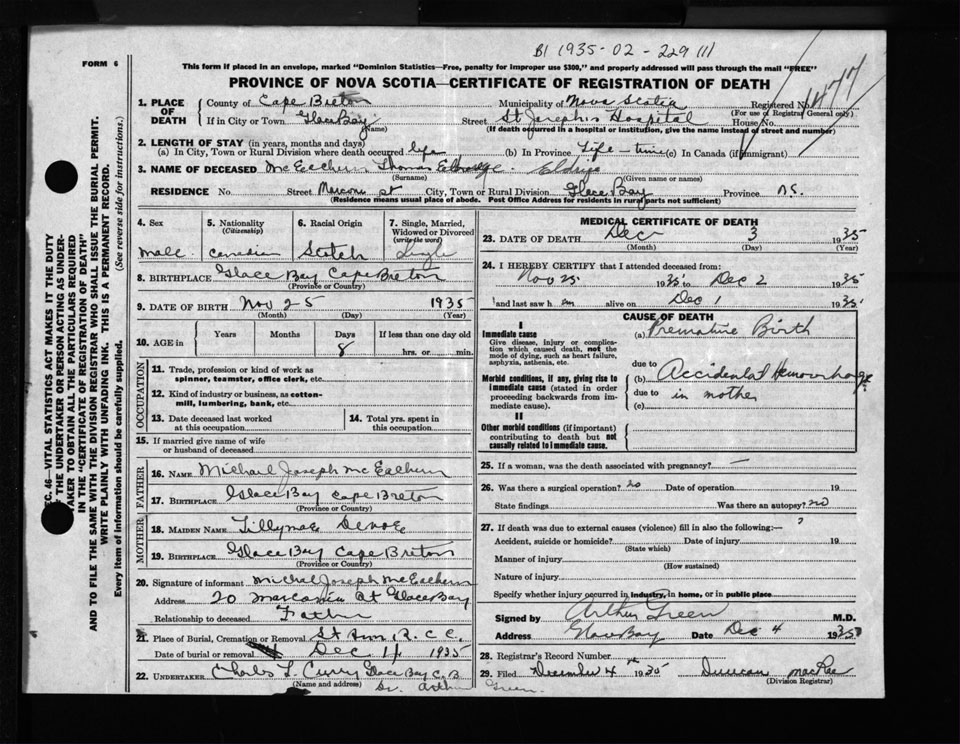 B1 1935-02-229111
FORM 6
This form if placed in an envelope, marked "Dominion Statistics—Free, penalty for improper use $300," and properly addressed will pass through the mail "FREE"
PROVINCE OF NOVA SCOTIA—CERTIFICATE OF REGISTRATION OF DEATH
1. PLACE OF DEATH
County of Cape Breton Municipality of Nova Scotia Registered No.
(For use of Registrar General only)
If in City or Town Glace Bay Street St Joseph's Hospital House No.
(Name) (If death occurred in a hospital or institution, give the name instead of street and number)
2. LENGTH OF STAY (in years, months and days)
(a) In City, Town or Rural Division where death occurred life (b) In Province Life-time (c) In Canada (if immigrant)
3. NAME OF DECEASED McEachern Thomas Eldridge
(Surname) (Given name or names)
RESIDENCE No. Street Marconi st City, Town or Rural Division Glace Bay Province N.S.
(Residence means usual place of abode. Post Office Address for residents in rural parts not sufficient)
4. Sex 5. Nationality (Citizenship) 6. Racial Origin 7. Single, Married, Widowed or Divorced (write the word)
male Canadian Scotch Single
8. BIRTHPLACE Glace Bay Cape Breton
(Province or Country)
9. DATE OF BIRTH Nov 25 1935
(Month) (Day) (Year)
10. AGE in Years Months Days If less than one day old
8 hrs. or min.
OCCUPATION
11. Trade, profession or kind of work as spinner, teamster, office clerk, etc.
12. Kind of industry or business, as cotton-mill, lumbering, bank, etc.
13. Date deceased last worked at this occupation
14. Total yrs. spent in this occupation
15. If married give name of wife or husband of deceased
FATHER
16. NAME Michael Joseph McEachern
17. BIRTHPLACE Glace Bay Cape Breton
(Province or Country)
MOTHER
18. MAIDEN NAME Tillymae Devoe
19. BIRTHPLACE Glace Bay Cape Breton
(Province or Country)
20. Signature of informant Michael Joseph McEachern
Address 20 Marconia st Glace Bay
Relationship to deceased Father
21. Place of Burial, Cremation or Removal St Ann. R.C.C.
Date of burial or removal Dec 1935
22. UNDERTAKER Charles L Curry Glace Bay C.B.
(Name and address)
Dr. Arthur Green
MEDICAL CERTIFICATE OF DEATH
23. DATE OF DEATH Dec 3 1935
(Month) (Day) (Year)
24. I HEREBY CERTIFY that I attended deceased from:
Nov 25 1935 to Dec 2 1935
and last saw h im alive on Dec 1 1935
CAUSE OF DEATH
I
Immediate cause
Give disease, injury or complication which caused death, not the mode of dying, such as heart failure, asphyxia, asthenia, etc.
(a) Premature Birth
due to
Morbid conditions, if any, giving rise to immediate cause (stated in order proceeding backwards from immediate cause).
(b) Accidental Hemorrhage
due to in mother
(c)
II
Other morbid conditions (if important) contributing to death but not causally related to immediate cause.
25. If a woman, was the death associated with pregnancy? —
26. Was there a surgical operation? no Date of operation 19
State findings Was there an autopsy? no
27. If death was due to external causes (violence) fill in also the following:—
Accident, suicide or homicide? Date of injury 19
(State which)
Manner of injury
(How sustained)
Nature of injury
Specify whether injury occurred in industry, in home, or in public place
Signed by Arthur Green M.D.
Address Glace Bay Date Dec 4 1935
28. Registrar's Record Number
29. Filed December 4th 1935 Duncan MacRae
(Division Registrar)
SEC. 46—VITAL STATISTICS ACT MAKES IT THE DUTY
OF THE UNDERTAKER OR PERSON ACTING AS UNDER-
TAKER TO OBTAIN ALL THE PARTICULARS REQUIRED
IN THE "CERTIFICATE OF REGISTRATION OF DEATH"
AND TO FILE THE SAME WITH THE DIVISION REGISTRAR WHO SHALL ISSUE THE BURIAL PERMIT.
WRITE PLAINLY WITH UNFADING INK. THIS IS A PERMANENT RECORD.
Every item of information should be carefully supplied. (See reverse side for instructions.)